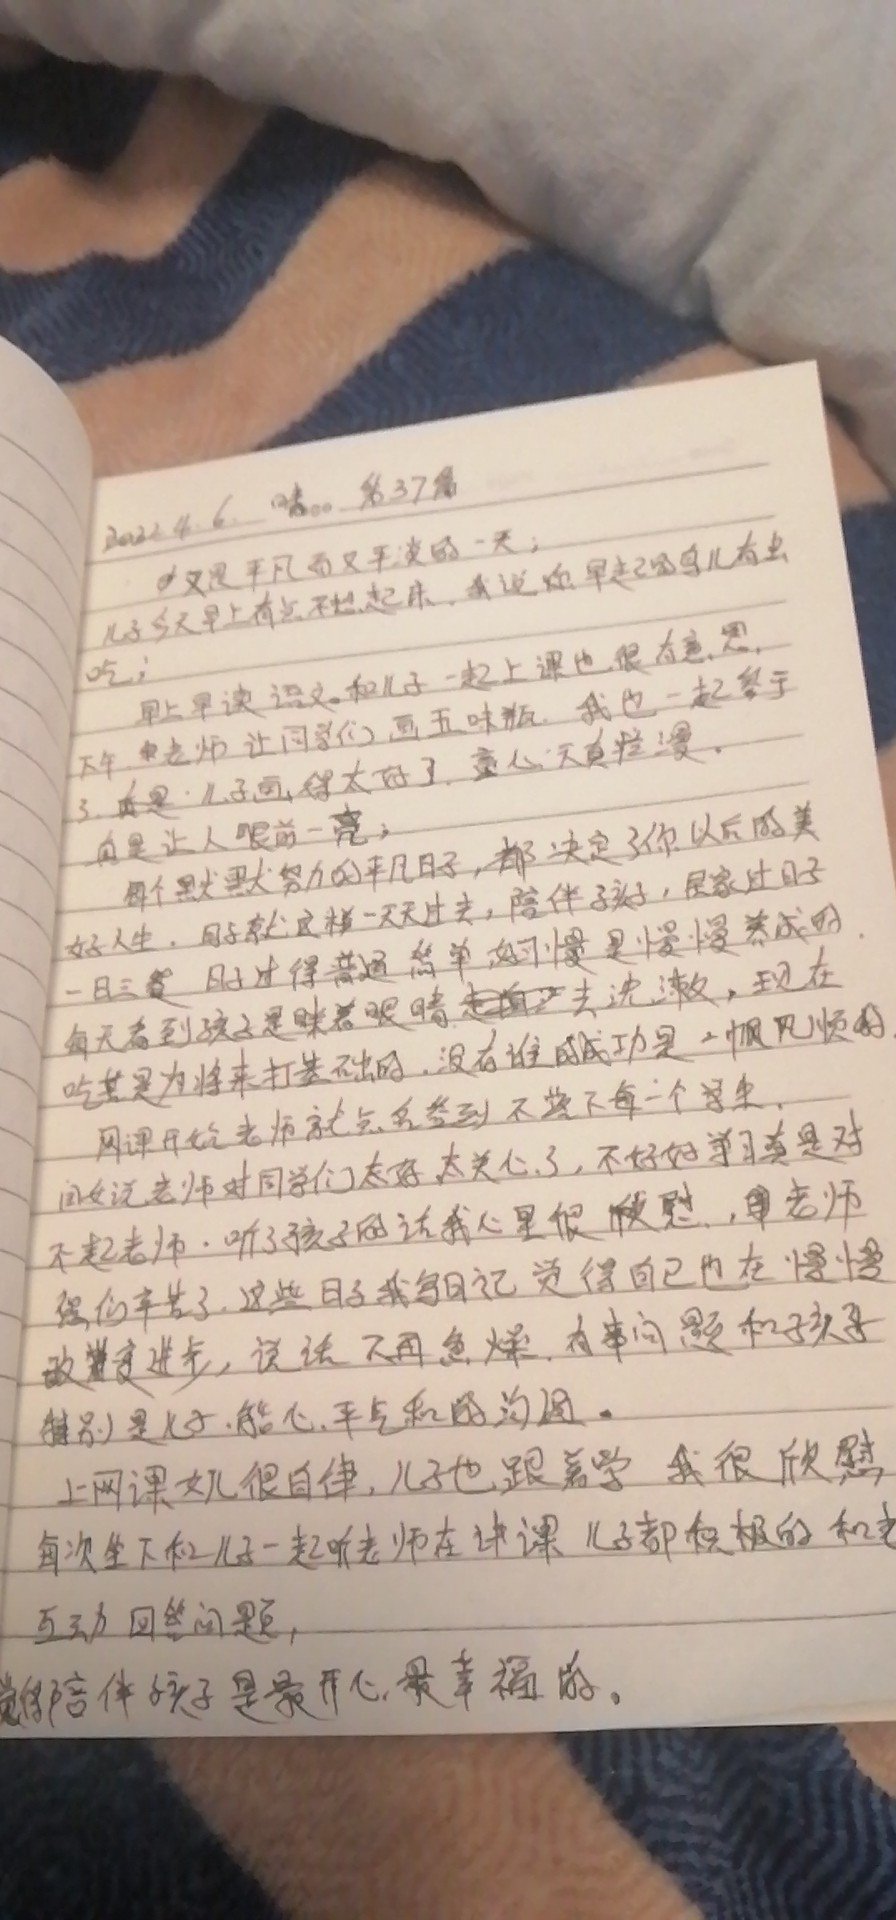 2022.4.6. 晴... 第37篇
又是平凡而又平淡的一天;
儿子今天早上有点不想起床.我说你早起的鸟儿有虫
吃;
早上早读语文。和儿子一起上课也很有意思.
下午.老师让同学们画五味瓶.我也一起参于
了.真是.儿子画得太好了.童心天真烂漫.
真是让人眼前一亮;
每个默默努力的平凡日子,都决定了你以后的美
好人生.日子就这样一天天过去,陪伴孩子,居家过日子
一日三餐 日子过得普通简单 好习惯是慢慢养成的.
每天看到孩子是眯着眼睛去洗漱,现在
吃苦是为将来打基础的.没有谁的成功是一帆风顺的.
网课开始老师就点名签到 不落下每一个学生.
闺女说老师对同学们太好.太关心了,不好好学习真是对
不起老师.听了孩子的话我心里很欣慰.,老师
你们辛苦了.这些日子我写日记 觉得自己也在慢慢
改变进步,说话不再急燥.有事问题和孩子
特别是儿子.能心.平气和的沟通。
上网课女儿很自律.儿子也跟着学 我很欣慰,
每次坐下和儿子一起听老师在讲课 儿子都积极的和老
互动回答问题,
觉得陪伴孩子是最开心.最幸福的。